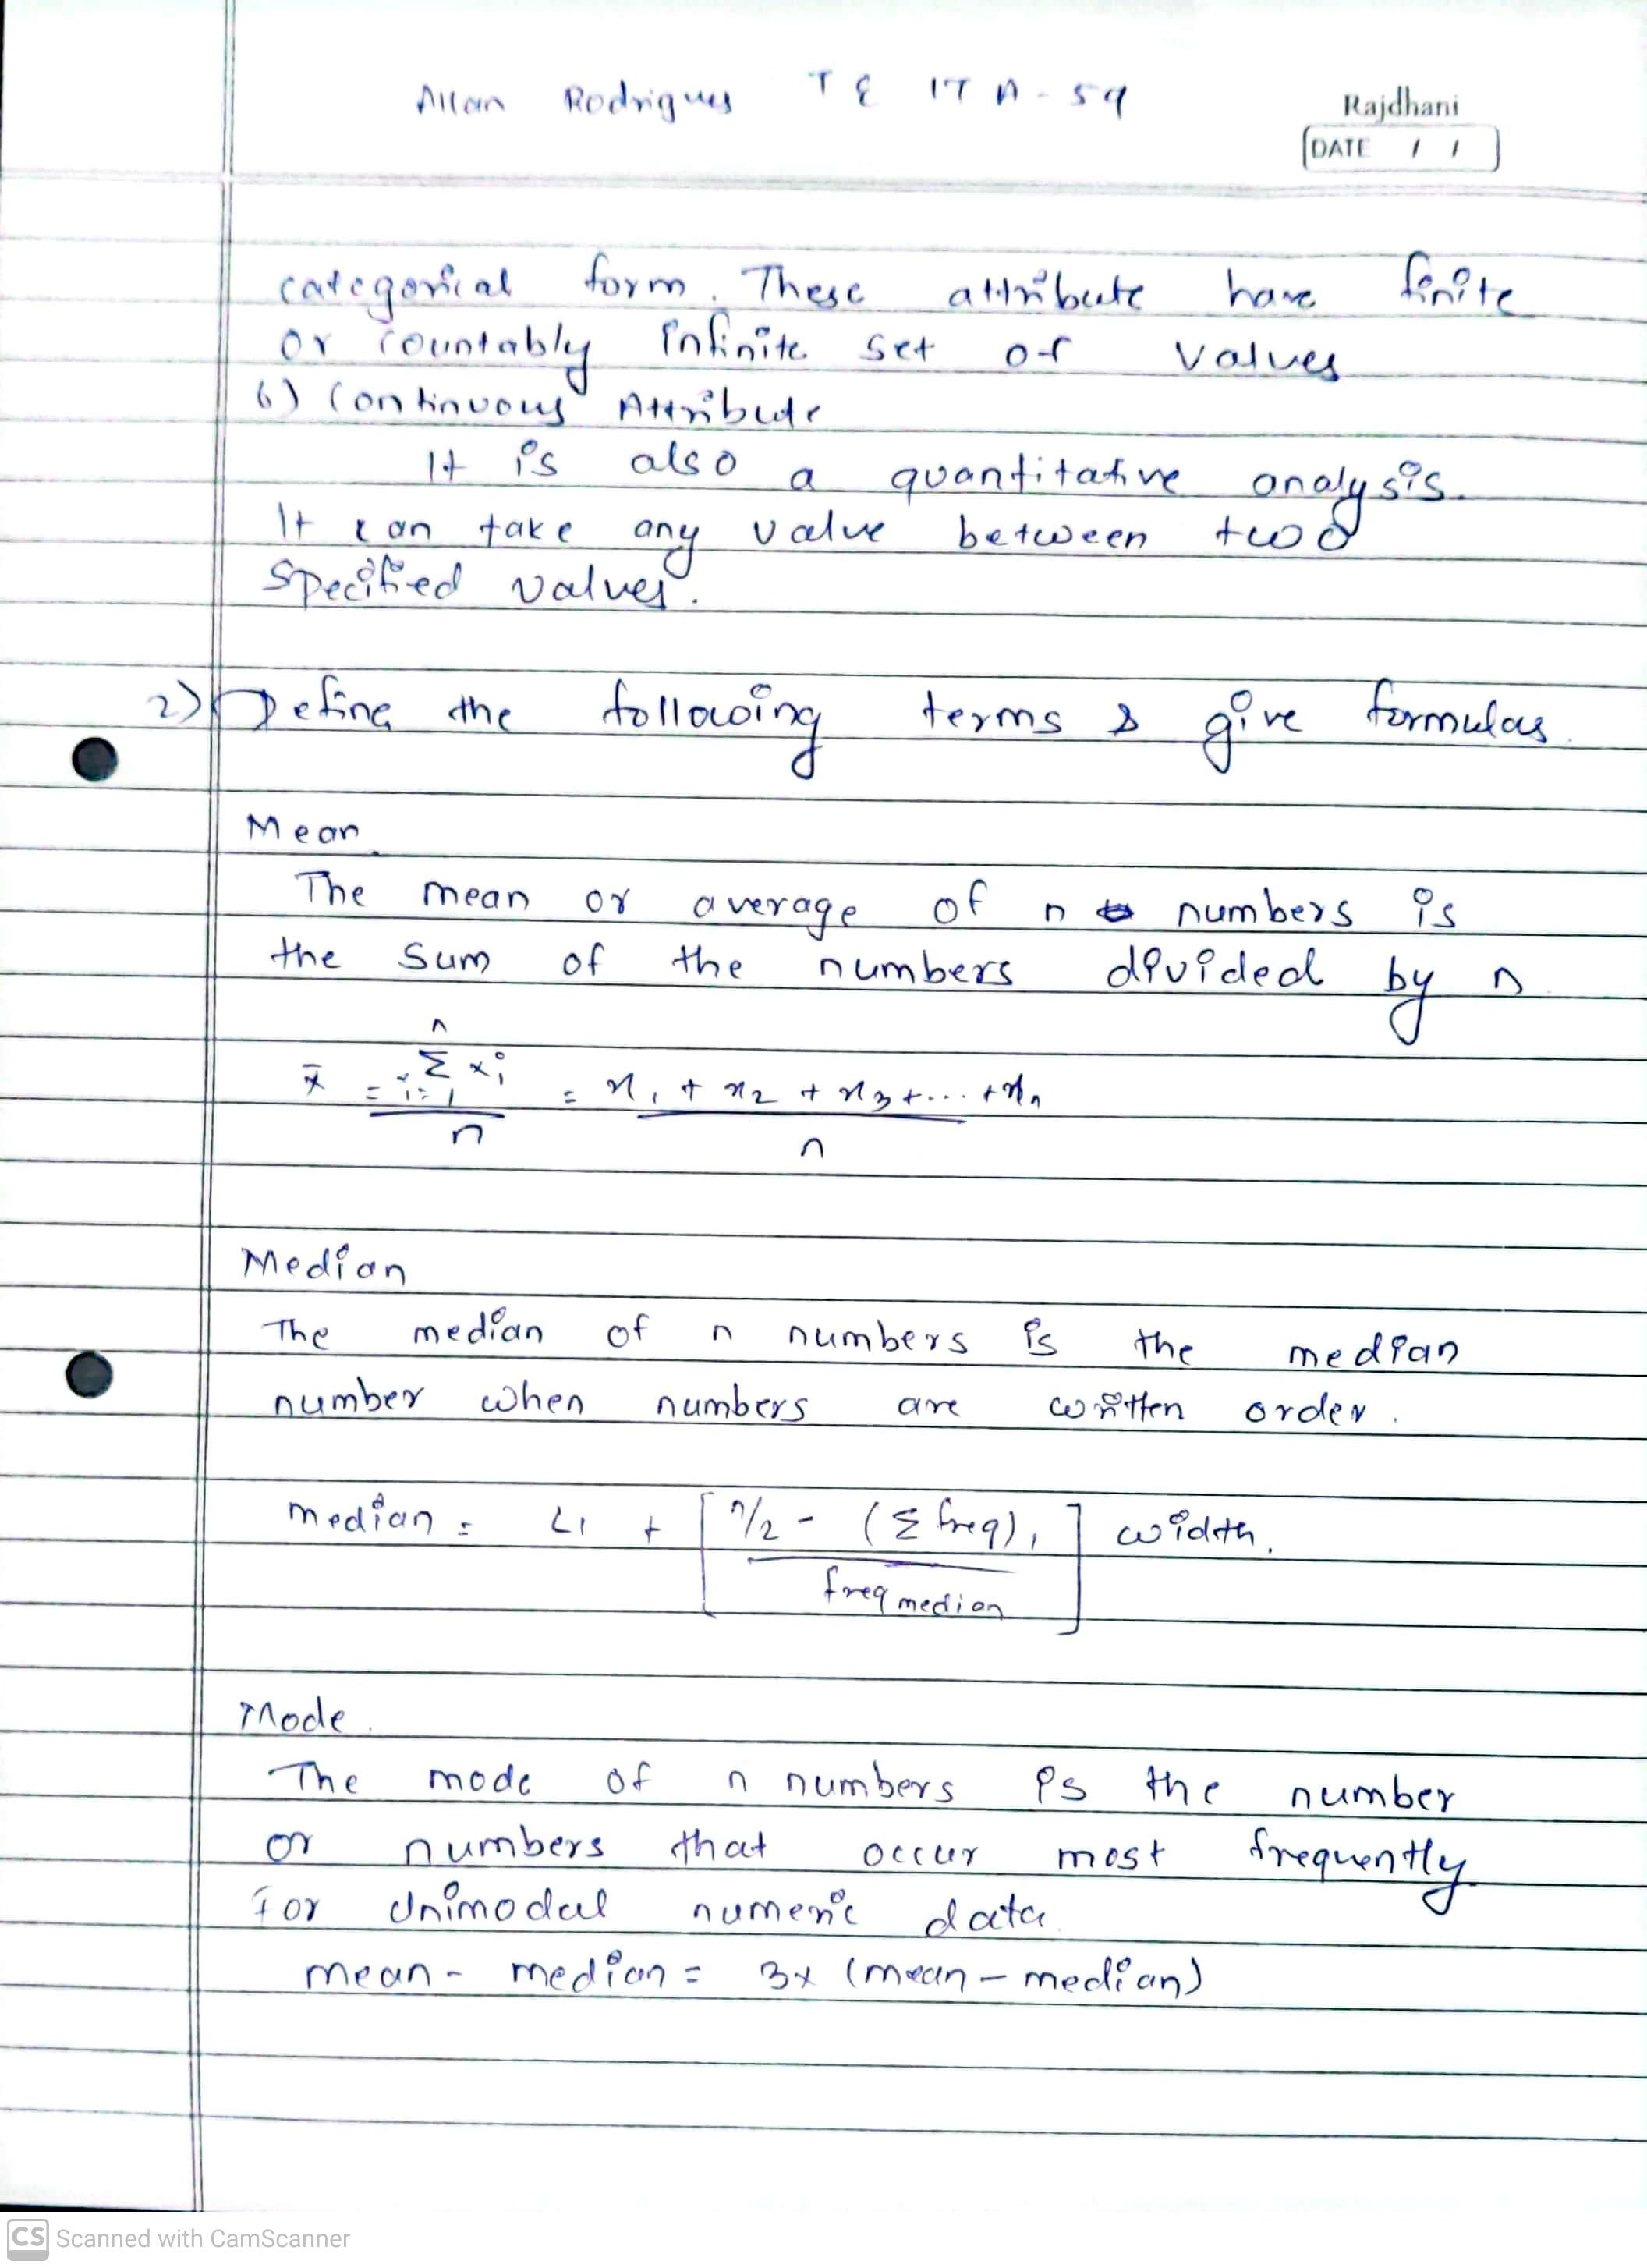 Allan Rodrigues TE IT A-59
Rajdhani
DATE / /
categorical form. These attribute have finite
or countably infinite set of values
6) Continuous Attribute
It is also a quantitative analysis.
It can take any value between two
specified values.
2) Define the following terms & give formulas.
Mean
The mean or average of n numbers is
the sum of the numbers divided by n
x̄ = Σ xi = x1 + x2 + x3 + ... + xn
n i=1 n n
Median
The median of n numbers is the median
number when numbers are written order.
median = L1 + [n/2 - (Σ freq)1 / freq median] width.
Mode.
The mode of n numbers is the number
or numbers that occur most frequently
For Unimodal numeric data.
mean - median = 3x (mean - median)
CS Scanned with CamScanner